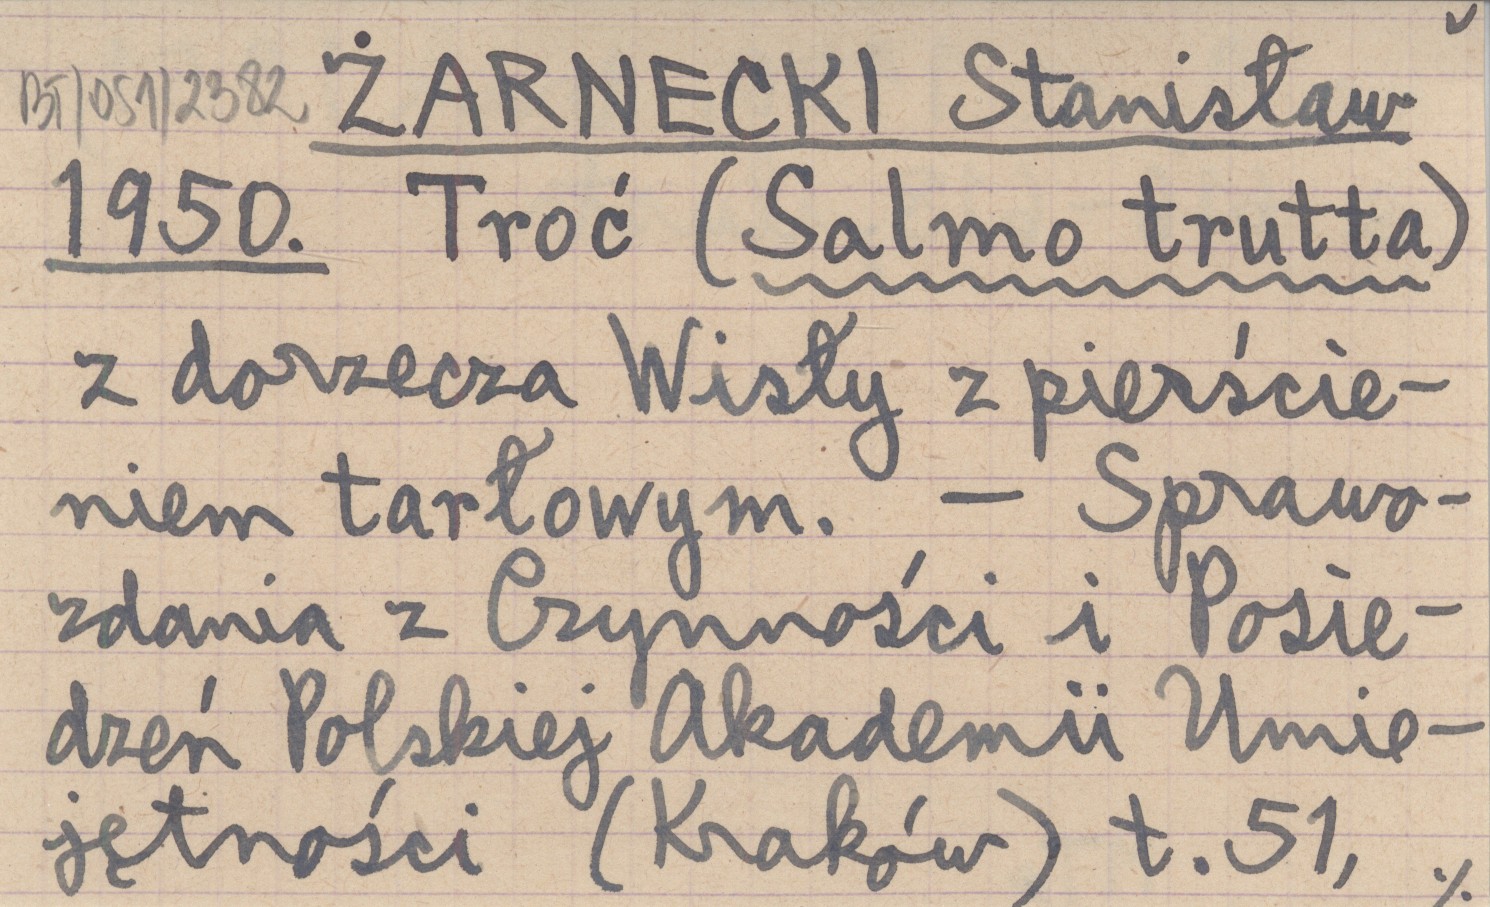 BT/051/2382 ŻARNECKI Stanisław
1950. Troć (Salmo trutta)
z dorzecza Wisły z pierście-
niem tarłowym. — Sprawo-
zdania z Czynności i Posie-
dzeń Polskiej Akademii Umie-
jętności (Kraków) t. 51, ./.